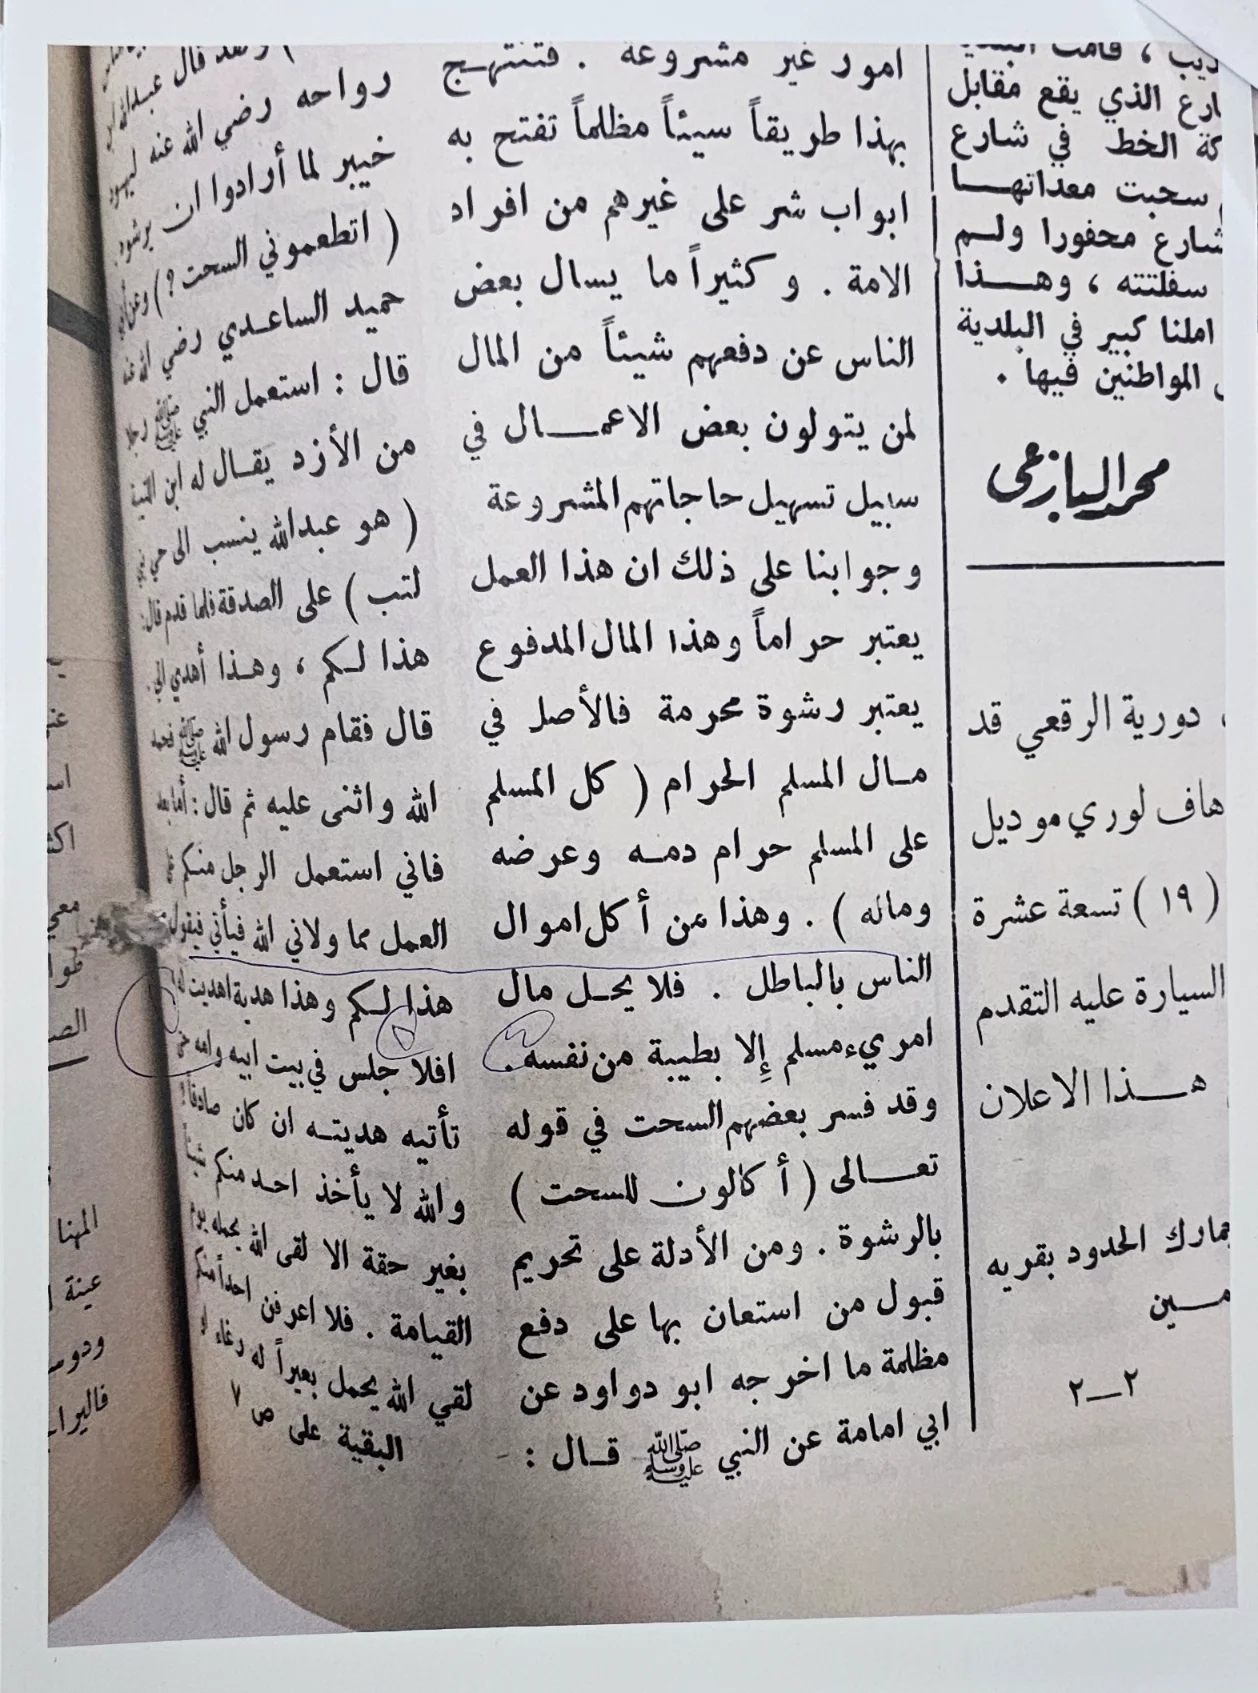 ديب ، قامت البلدية
ارع الذي يقع مقابل
كة الخط في شارع
سحبت معداتهـــا
شارع محفورا ولـم
سفلتته ، وهـــذا
املنا كبير في البلدية
المواطنين فيها .
محمد البازعي
دورية الرقعي قد
هاف لوري موديل
( ١٩ ) تسعة عشرة
السيارة عليه التقدم
هـــذا الاعلان
مارك الحدود بقريه
٢—٢
امور غير مشروعة . فتنتهـج
بهذا طريقاً سيئاً مظلماً تفتح به
ابواب شر على غيرهم من افراد
الامة . وكثيراً ما يسال بعض
الناس عن دفعهم شيئاً من المال
لمن يتولون بعض الاعمـــال في
سبيل تسهيل حاجاتهم المشروعة
وجوابنا على ذلك ان هذا العمل
يعتبر حراماً وهذا المال المدفوع
يعتبر رشوة محرمة فالأصل في
مـال المسلم الحرام ( كل المسلم
على المسلم حرام دمـه وعرضه
وماله ) . وهذا من أكل اموال
الناس بالباطل . فلا يحـل مال
امريء مسلم إلا بطيبة من نفسه .
وقد فسر بعضهم السحت في قوله
تعـــالى ( أكالون للسحت )
بالرشوة . ومن الأدلة على تحريم
قبول من استعان بها على دفع
مظلمة ما اخرجه ابو دواود عن
ابي امامة عن النبي ﷺ قـال :
قال عبدالله بن
رواحه رضي الله عنه ليهود
خيبر لما أرادوا ان يرشوه
( اتطعموني السحت ؟ ) وعن أبي
حميد الساعـدي رضي الله عنه
قال : استعمل النبي ﷺ رجلا
من الأزد يقـال له ابن اللتبية
( هو عبدالله ينسب الى حي بني
لتب ) على الصدقة فلما قدم قال :
هذا لـكم ، وهـذا أهدي الي .
قال فقام رسول الله ﷺ فحمد
الله واثنى عليه ثم قال : أما بعد
فاني استعمل الرجل منـكم على
العمل مما ولاني الله فيأتي فيقول
هذا لـكم وهذا هدية اهديت لي
افلا جلس في بيت ابيه وامه حتى
تأتيه هديتـه ان كان صادقا ؟
والله لا يأخذ احـد منكم شيئاً
بغير حقة الا لقى الله يحمله يوم
القيامة . فلا اعرفن احداً منكم
لقي الله يحمل بعيراً له رغاء او
البقية على ص ٧
معي
الصـ
المهنا
عينة
ودوسـ